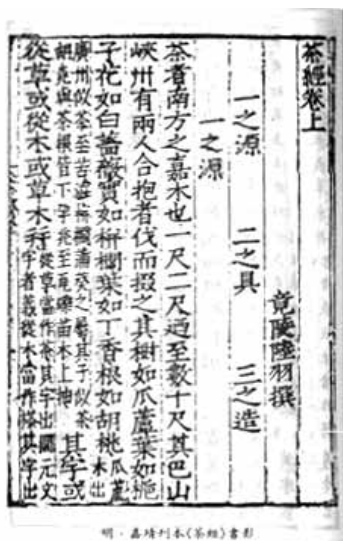 茶經卷上
竟陵陸羽撰
一之源 二之具 三之造
一之源
茶者南方之嘉木也一尺二尺迺至數十尺其巴山
峽州有兩人合抱者伐而掇之其樹如瓜蘆葉如梔
子花如白薔薇實如栟櫚葉如丁香根如胡桃瓜蘆木出
廣州似茶至苦澁栟櫚蒲葵之屬其子似茶
胡桃與茶根皆下孕兆至瓦礫苗木上抽其字或
從草或從木或草木并從草當作茶其字出開元文
字音義從木當作搽其字出
明·嘉靖刊本《茶經》書影